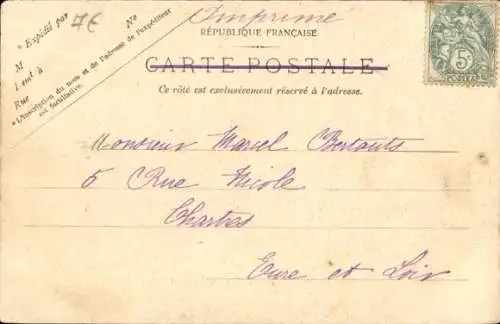 Imprimé
RÉPUBLIQUE FRANÇAISE
CARTE POSTALE
Ce côté est exclusivement réservé à l'adresse.
* Expédié par
M No
Dem<sup>t</sup> à
Rue
*L'inscription du nom et de l'adresse de l'expéditeur
est facultative.
7€
5c
POSTES
Monsieur Marcel Bertauts
5 Rue Nicole
Chartres
Eure et Loir